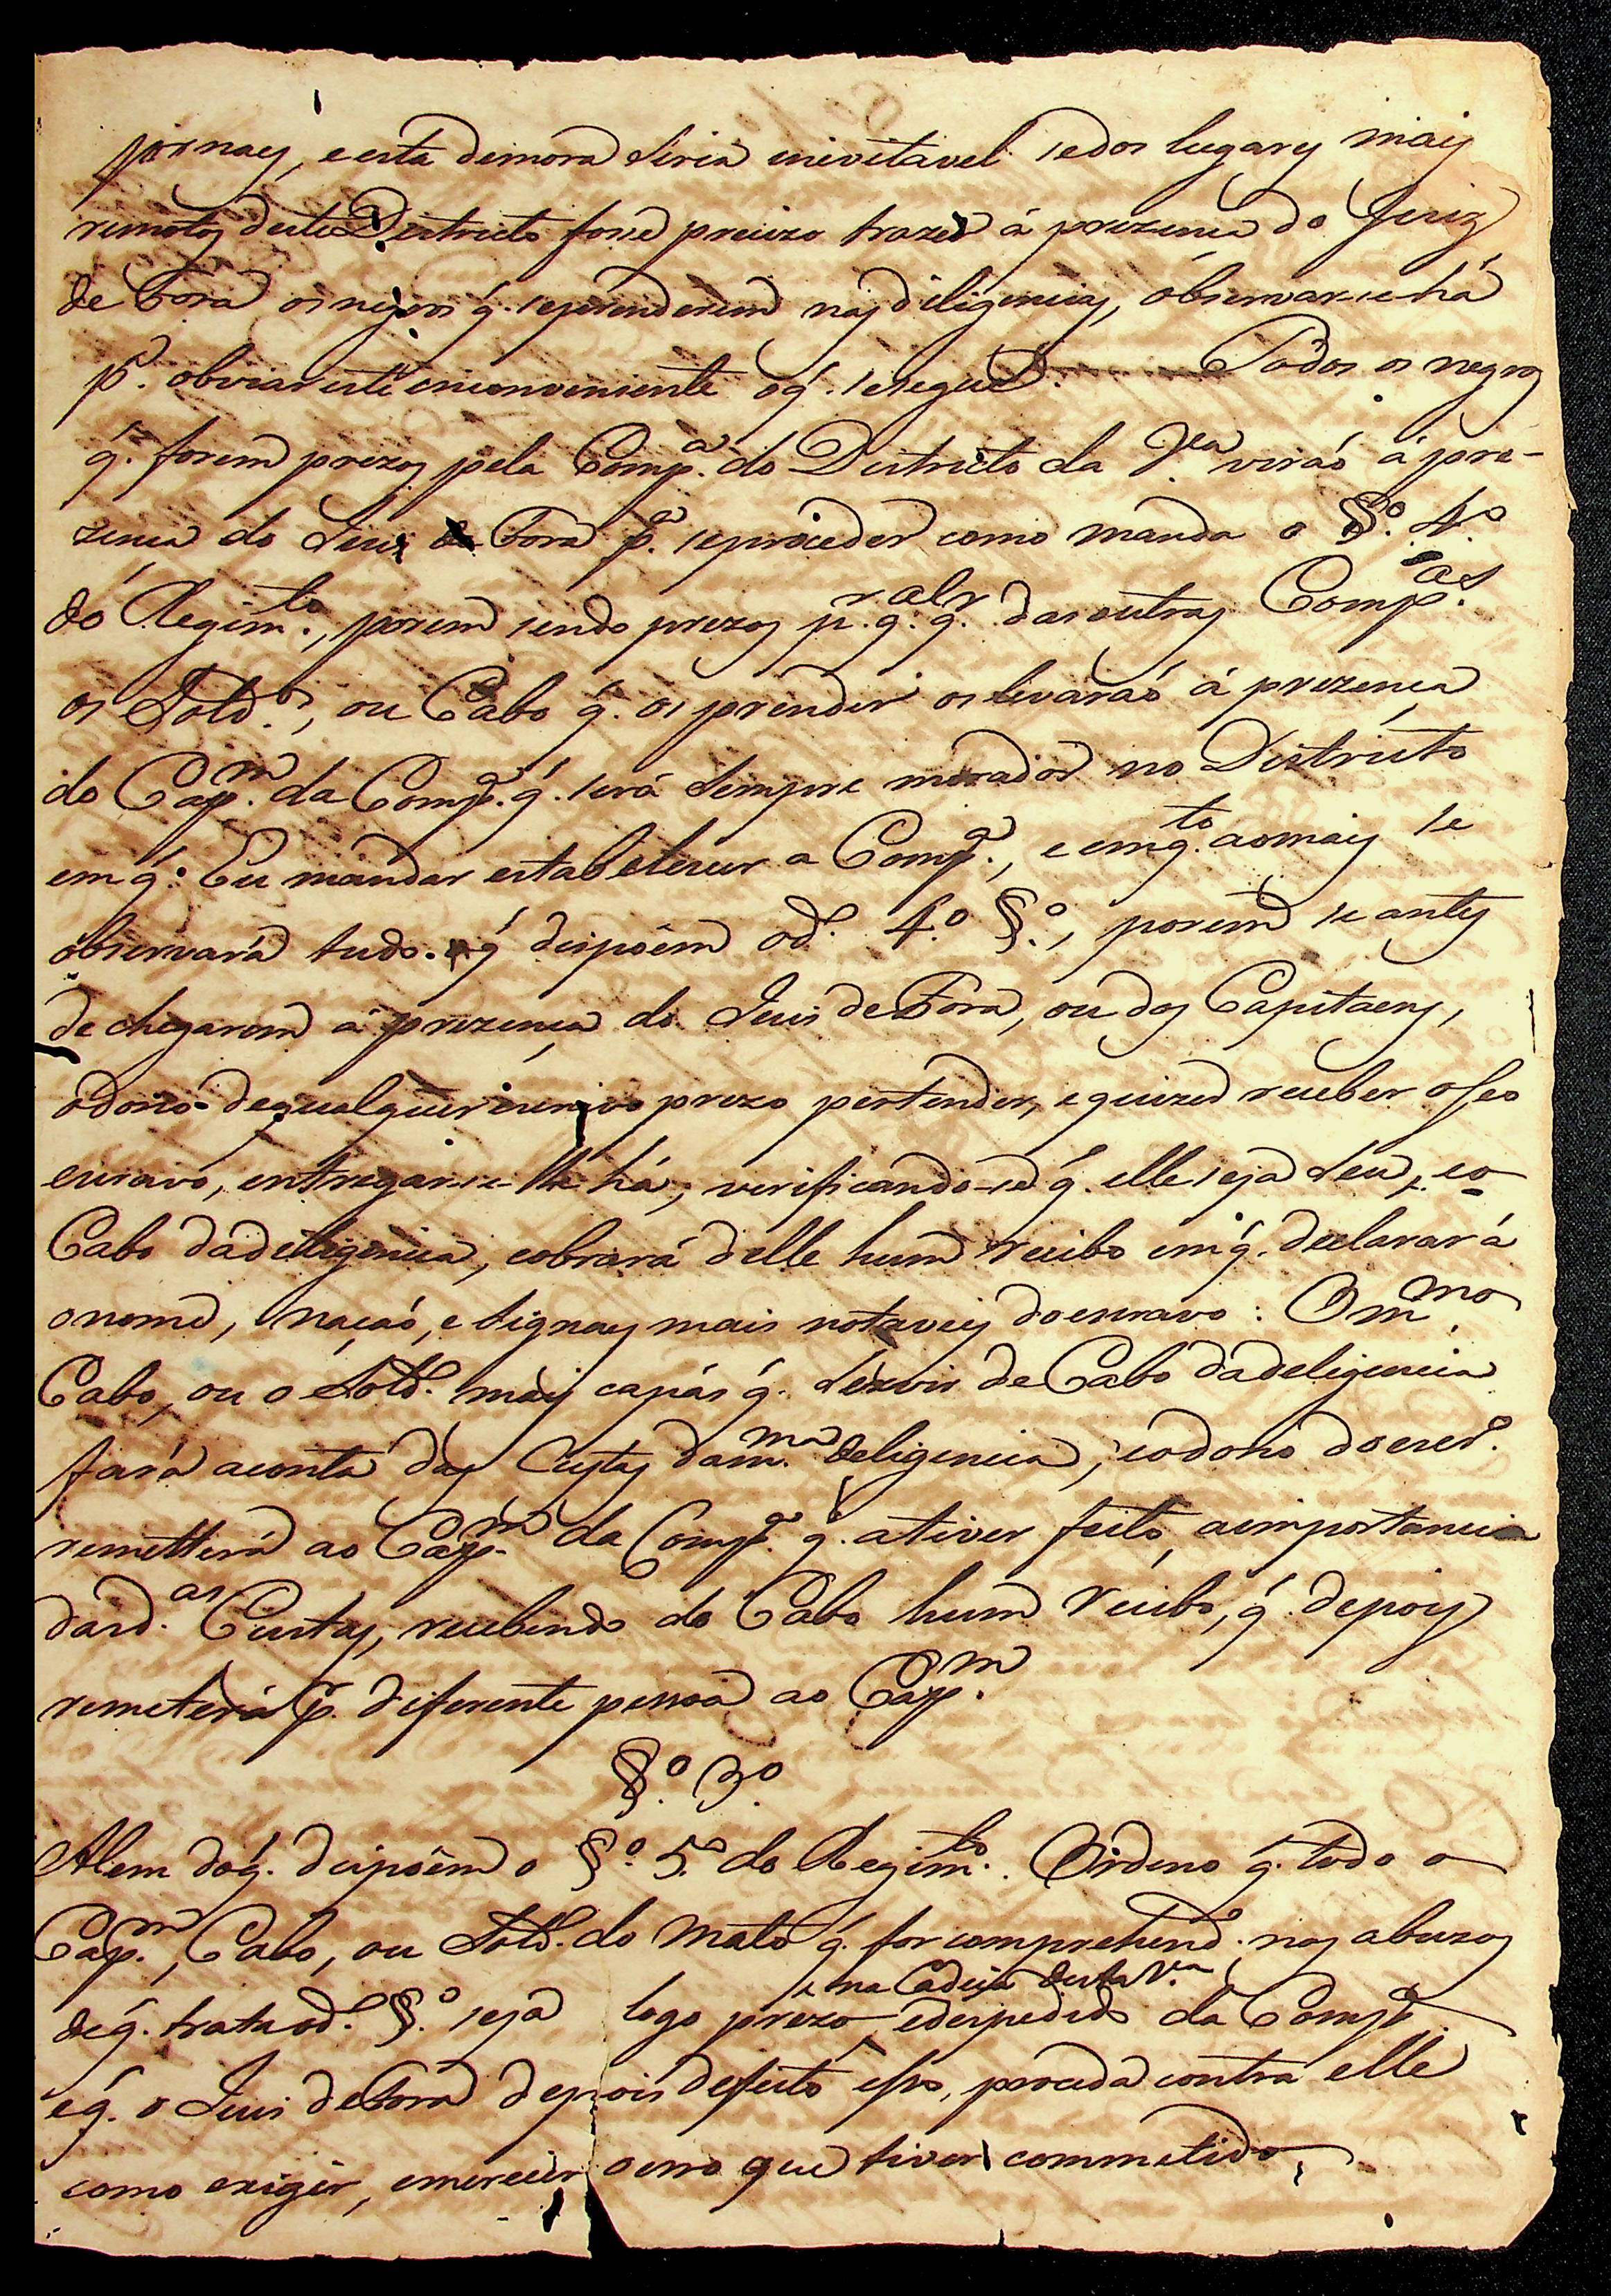 jornaes, e esta demora seria inevitavel se dos lugares mais
remotos deste Destricto fosse precizo trazer á prezença do Juiz
de Fora os negros q̃. se prenderem nas diligencias, observar-se-há
pª. obviar este inconveniente o q̃. se segue. Todos os negros
q̃. forem prezos pela Compª. do Destricto da Vª. viráo á pre-
zença do Juis de Fora pª. se proceder como manda o §º. 4º.
do Regimto., porem sendo prezos pr. qalqr. das outras Compas.
os Soldos., ou Cabo q̃. os prender os levaráo á prezença
do Capm. da Compª. q̃. será sempre morador no Districto
em q̃. Eu mandar estabelecer a Compª., e emqto. ao mais se
observará tudo o q̃ dispoem o dº. 4º. §º., porem se antes
de chegarem á prezença do Juis de Fora, ou dos Capitaens,
o dono de qualquer escravo prezo pertender, e quizer receber o seo
escravo, entregar-se-lhe há, verificando-se q̃. elle seja seu, e o
Cabo da deligencia, cobrará delle hum recibo em q̃. declarará
o nome, naçaó, e signaes mais notaveis do escravo: O mmo.
Cabo, ou o Soldº. mais capás q̃. servir de Cabo da deligencia
fará a conta das Custas da mma. deligencia, e o dono do escrº.
remetterá ao Capm. da Compª. q̃. a tiver feito, a importancia
das das. Custas, recebendo do Cabo hum recibo, q̃. depois
remeterá pr. diferente pessoa ao Capm.
§º. 3º.
Alem do q̃. dispoem o §º. 5º. do Regimto. Ordeno q̃. todo o
Capm., Cabo, ou Soldº. do Mato q̃. for comprehendº. nos abuzos
de q̃. trata o dº. §º. seja logo prezo na Cadeia desta Vª., e despedido da Compª.
e q̃. o Juis de Fora depois de feito isso, proceda contra elle
como exigir, e merecer o erro que tiver commetido.